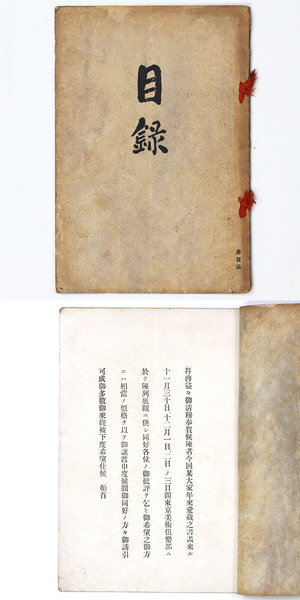 目録
非賣品
拜啓益々御清穆奉賀候陳者今回某大家年來愛藏之書畵來ル
十一月三十日、十二月一日、二日ノ三日間東京美術倶樂部ニ
於テ陳列展觀ニ供シ同好各位ノ御批評ヲ乞ヒ御希望之御方
ニハ相當ノ價格ヲ以テ御讓渡申度候間御同好ノ方々御誘引
可成御多數御來觀被下度希望仕候 頓首